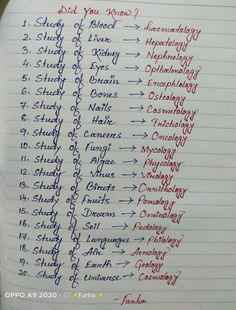 Did You Know?
1. Study of Blood → haematology
2. Study of Liver → Hepatology
3. Study of Kidney → Nephrology
4. Study of Eyes → Opthalmology
5. Study of Brain → Encephilology
6. Study of Bones → Osteology
7. Study of Nails → Cosmetology
8. Study of Hair → Trichology
9. Study of Cancers → Oncology
10. Study of Fungi → Mycology
11. Study of Algae → Phycology
12. Study of Virus → Virology
13. Study of Birds → Ornithology
14. Study of Fruits → Pomology
15. Study of Dream → Oneirology
16. Study of Soil → Pedology
17. Study of Languages → Philology
18. Study of Air → Aerology
19. Study of Earth → Geology
20. Study of Universe → Cosmology
OPPO A9 2020 · Farha
- Farha